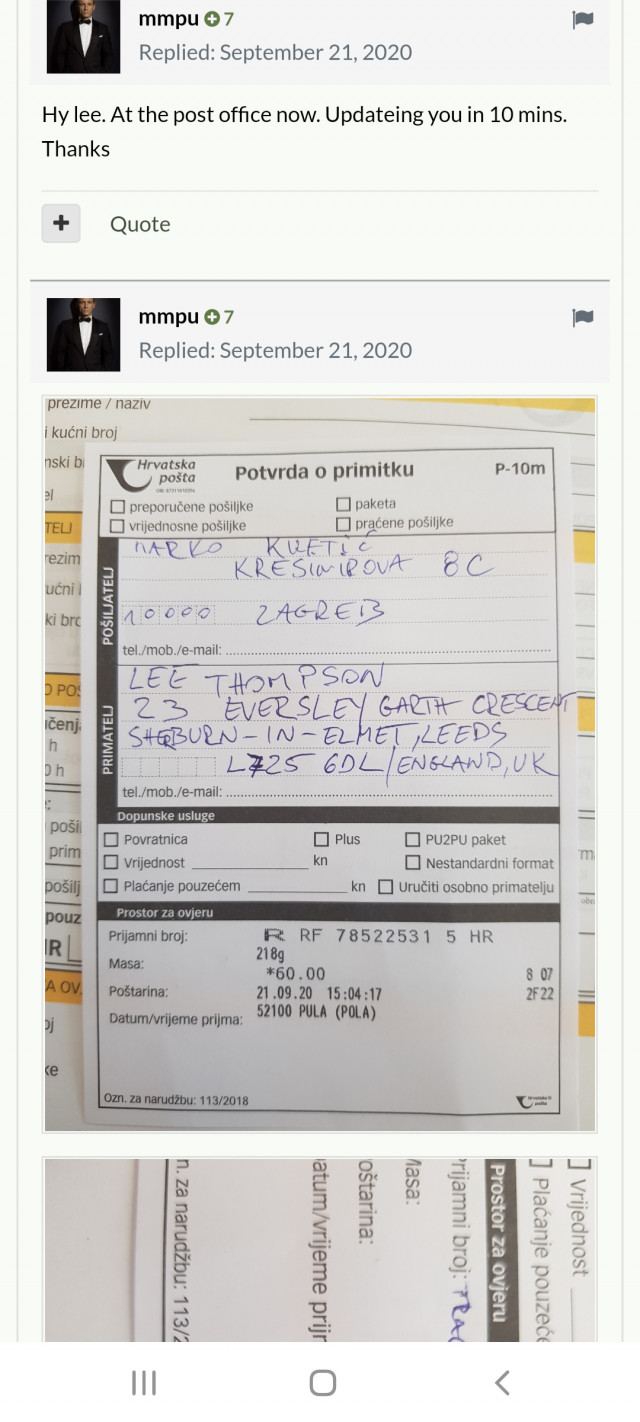 mmpu 7
Replied: September 21, 2020
Hy lee. At the post office now. Updateing you in 10 mins.
Thanks
+ Quote
mmpu 7
Replied: September 21, 2020
prezime / naziv
i kućni broj
nski b
el
TELJ
rezim
ućni
ki bro
O PO
ičenj
h
0 h
poši
prim
pošilj
pouz
IR
A OV
oj
ke
Hrvatska
pošta
Potvrda o primitku
P-10m
preporučene pošiljke
paketa
vrijednosne pošiljke
praćene pošiljke
POŠILJATELJ
MARKO KVETIĆ
KRESIMIROVA 8C
10000 ZAGREB
tel./mob./e-mail:
PRIMATELJ
LEE THOMPSON
23 EVERSLEY GARTH CRESCENT
SHERBURN-IN-ELMET, LEEDS
L725 6DL/ENGLAND, UK
tel./mob./e-mail:
Dopunske usluge
Povratnica
Plus
PU2PU paket
Vrijednost kn
Nestandardni format
Plaćanje pouzećem kn
Uručiti osobno primatelju
Prostor za ovjeru
Prijamni broj: R RF 78522531 5 HR
Masa: 218g
Poštarina: *60.00 8 07
Datum/vrijeme prijma: 21.09.20 15:04:17 2F22
52100 PULA (POLA)
Ozn. za narudžbu: 113/2018
Vrijednost
Plaćanje pouzeće
Prostor za ovjeru
rijamni broj: TRA
Masa:
oštarina:
atum/vrijeme prijm
n. za narudžbu: 113/2